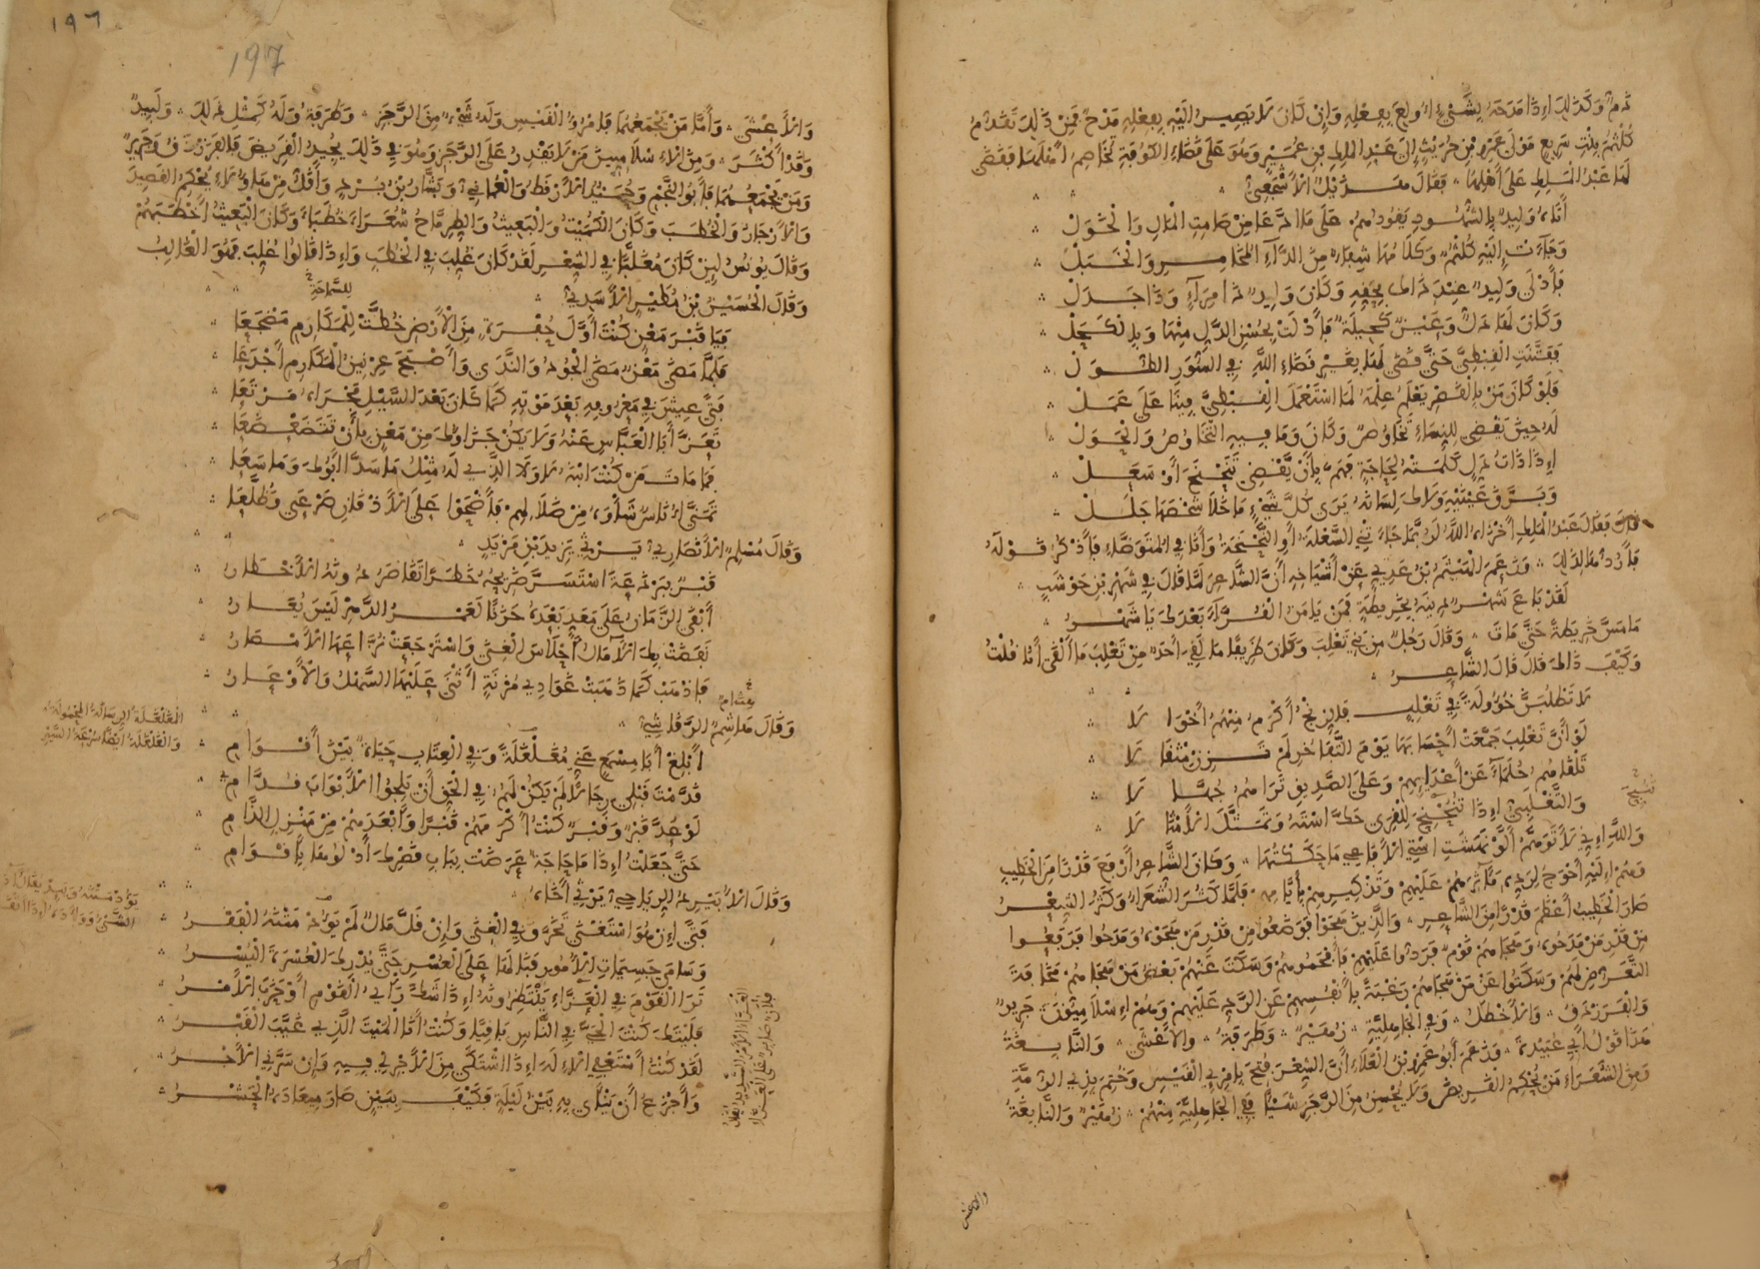 ذم وكذلك إذا مدحه بشيء أولع بفعله وإن كان لا يصير إليه بفعله مدح فمن ذلك تقدم
كلثم بنت سريع مولى عمرو بن حريث إلى عبد الملك بن عمير وهو على قضاء الكوفة تخاصم أهلها فقضى
لها عبد الملك على أهلها فقال هذيل الأشجعي
أتاه وليد بالشهود يقودهم على ما ادعا من صامت المال والخول
وجاءت إليه كلثم وكلامها شفاء من الداء المخامر والخبل
فأدلى وليد عند ذاك بحقه وكان وليد ذا مراء وذا جدل
وكان لها دل وعين كحيلة فأدلت بحسن الدل منها وبالكحل
ففتنت القبطي حتى قضى لها بغير قضاء الله في السور الطول
فلو كان من بالقصر يعلم علمه لما استعمل القبطي فينا على عمل
له حين يقضي للنساء تخاوص وكان وما فيه التخاوص والحول
إذا ذات دل كلمته لحاجة فهم بأن يقضي تنحنح أو سعل
وبرق عينيه ولاك لسانه يرى كل شيء ما خلا شخصها جلل
قال فقال عبد الملك أخزاه الله لربما جاءني السعلة أو النحنحة وأنا في المتوضأ فأذكر قوله
فأردها لذلك وزعم الهيثم بن عدي عن أشياخه أن الشاعر لما قال في شهر بن حوشب
لقد باع شهر دينه بخريطة فمن يامن القراء بعدك يا شهر
ما مس خريطة حتى مات وقال رجل من بني تغلب وكان ظريفا ما لقي أحد من تغلب ما ألقى أنا قلت
وكيف ذاك قال قال الشاعر
لا تطلبن خؤولة في تغلب فالزنج أكرم منهم أخوالا
لو أن تغلب جمعت أحسابها يوم التفاخر لم تزن مثقالا
تلقاهم حلماء عن أعدائهم وعلى الصديق تراهم جهالا
والتغلبي إذا تنحنح للقرى حك استه وتمثل الأمثالا
والله إني لأتوهم أن لو نهشت استي الأفاعي ما حككتها وكان الشاعر أرفع قدرا من الخطيب
وهم إليه أحوج لرده مآثرهم عليهم وتذكيرهم بأيامهم فلما كثر الشعراء وكثر الشعر
صار الخطيب أعظم قدرا من الشاعر والذين هجوا فوضعوا من قدر من هجوه ومدحوا فرفعوا
من قدر من مدحوه وهجاهم قوم فردوا عليهم فأفحموهم وسكت عنهم بعض من هجاهم مخافة
التعرض لهم وسكتوا عن من هجاهم رغبة بأنفسهم عن الرد عليهم وهم إسلاميون جرير
والفرزدق والأخطل وفي الجاهلية زهير وطرفة والأعشى والنابغة
هذا قول أبي عبيدة وزعم أبو عمرو بن العلاء أن الشعر فتح بامرئ القيس وختم بذي الرمة
ومن الشعراء من يحكم القريض ولا يحسن من الرجز شيئا ففي الجاهلية منهم زهير والنابغة
والاعشى
١٩٦
197
والأعشى وأما من يجمعهما فامرؤ القيس وله شيء من الرجز وطرفة وله كمثل ذلك ولبيد
وقد أكثر ومن الإسلاميين من لا يقدر على الرجز وهو في ذلك يجيد القريض كالفرزدق وجرير
ومن يجمعهما فأبو النجم وحميد الأرقط والعماني وبشار بن برد وأقل من هؤلاء يحكم القصيد
والأرجاز والخطب وكان الكميت والبعيث والطرماح شعراء خطباء وكان البعيث أخطبهم
وقال يونس لئن كان مغلبا في الشعر لقد كان غلب في الخطب وإذا قالوا غلب فهو الغالب
وقال الحسين بن مطير الأسدي
للسماحة
فيا قبر معن كنت أول حفرة من الأرض خطت للمكارم مضجعا
فلما مضى معن مضى الجود والندى وأصبح عرنين المكارم أجدعا
فتى عيش في معروفه بعد موته كما كان بعد السيل مجراه مرتعا
تعز أبا العباس عنه ولا يكن جزاؤك من معن بأن تتضعضعا
فما مات من كنت ابنه لا ولا الذي له مثل ما سدا أبوك وما سعا
تمنى أناس شأوه من ضلالهم فأضحوا على الأذقان صرعى وظلعا
وقال مسلم الأنصاري يرثي يزيد بن مزيد
قبر ببرذعة استسر ضريحه خطرا تقاصر دونه الأخطار
أبقى الزمان على معد بعده حزنا لعمر الدهر ليس يعار
نفضت بك الآمال أحلاس الغنى واسترجعت نزاعها الأمصار
فاذهب كما ذهبت غوادي مزنة أثنى عليها السهل والأوعار
هشام
وقال هاشم الرقاشي
أبلغ أبا مسمع عني مغلغلة وفي العتاب حياة بين أقوام
قدمت قبلي رجالا لم يكن لهم في الحق أن يلجوا الأبواب قدامي
لو عد قبر وقبر كنت أكرمهم قبرا وأبعدهم من منزل الذام
حتى جعلت إذا ما حاجة عرضت بباب قصرك أدلوها بأقوام
وقال الأبيرد الرياحي يرثي أخاه
فتى إن هو استغنى تخرق في الغنى وإن قل مال لم يؤد متنه الفقر
وسام جسيمات الأمور فنالها على العسر حتى يدرك العسرة اليسر
ترا القوم في العزاء ينتظرونه إذا شك رأي القوم أو حزب الأمر
فليتك كنت الحي في الناس باقيا وكنت أنا الميت الذي غيب القبر
لقد كنت أستعفي الإله إذا اشتكى من الأجر لي فيه وإن سرني الأجر
وأجزع أن ينأى به بين ليلة فكيف ببين صار ميعاده الحشر
المغلغلة الرسالة المحمولة
والغلغلة أيضا سرعة السير